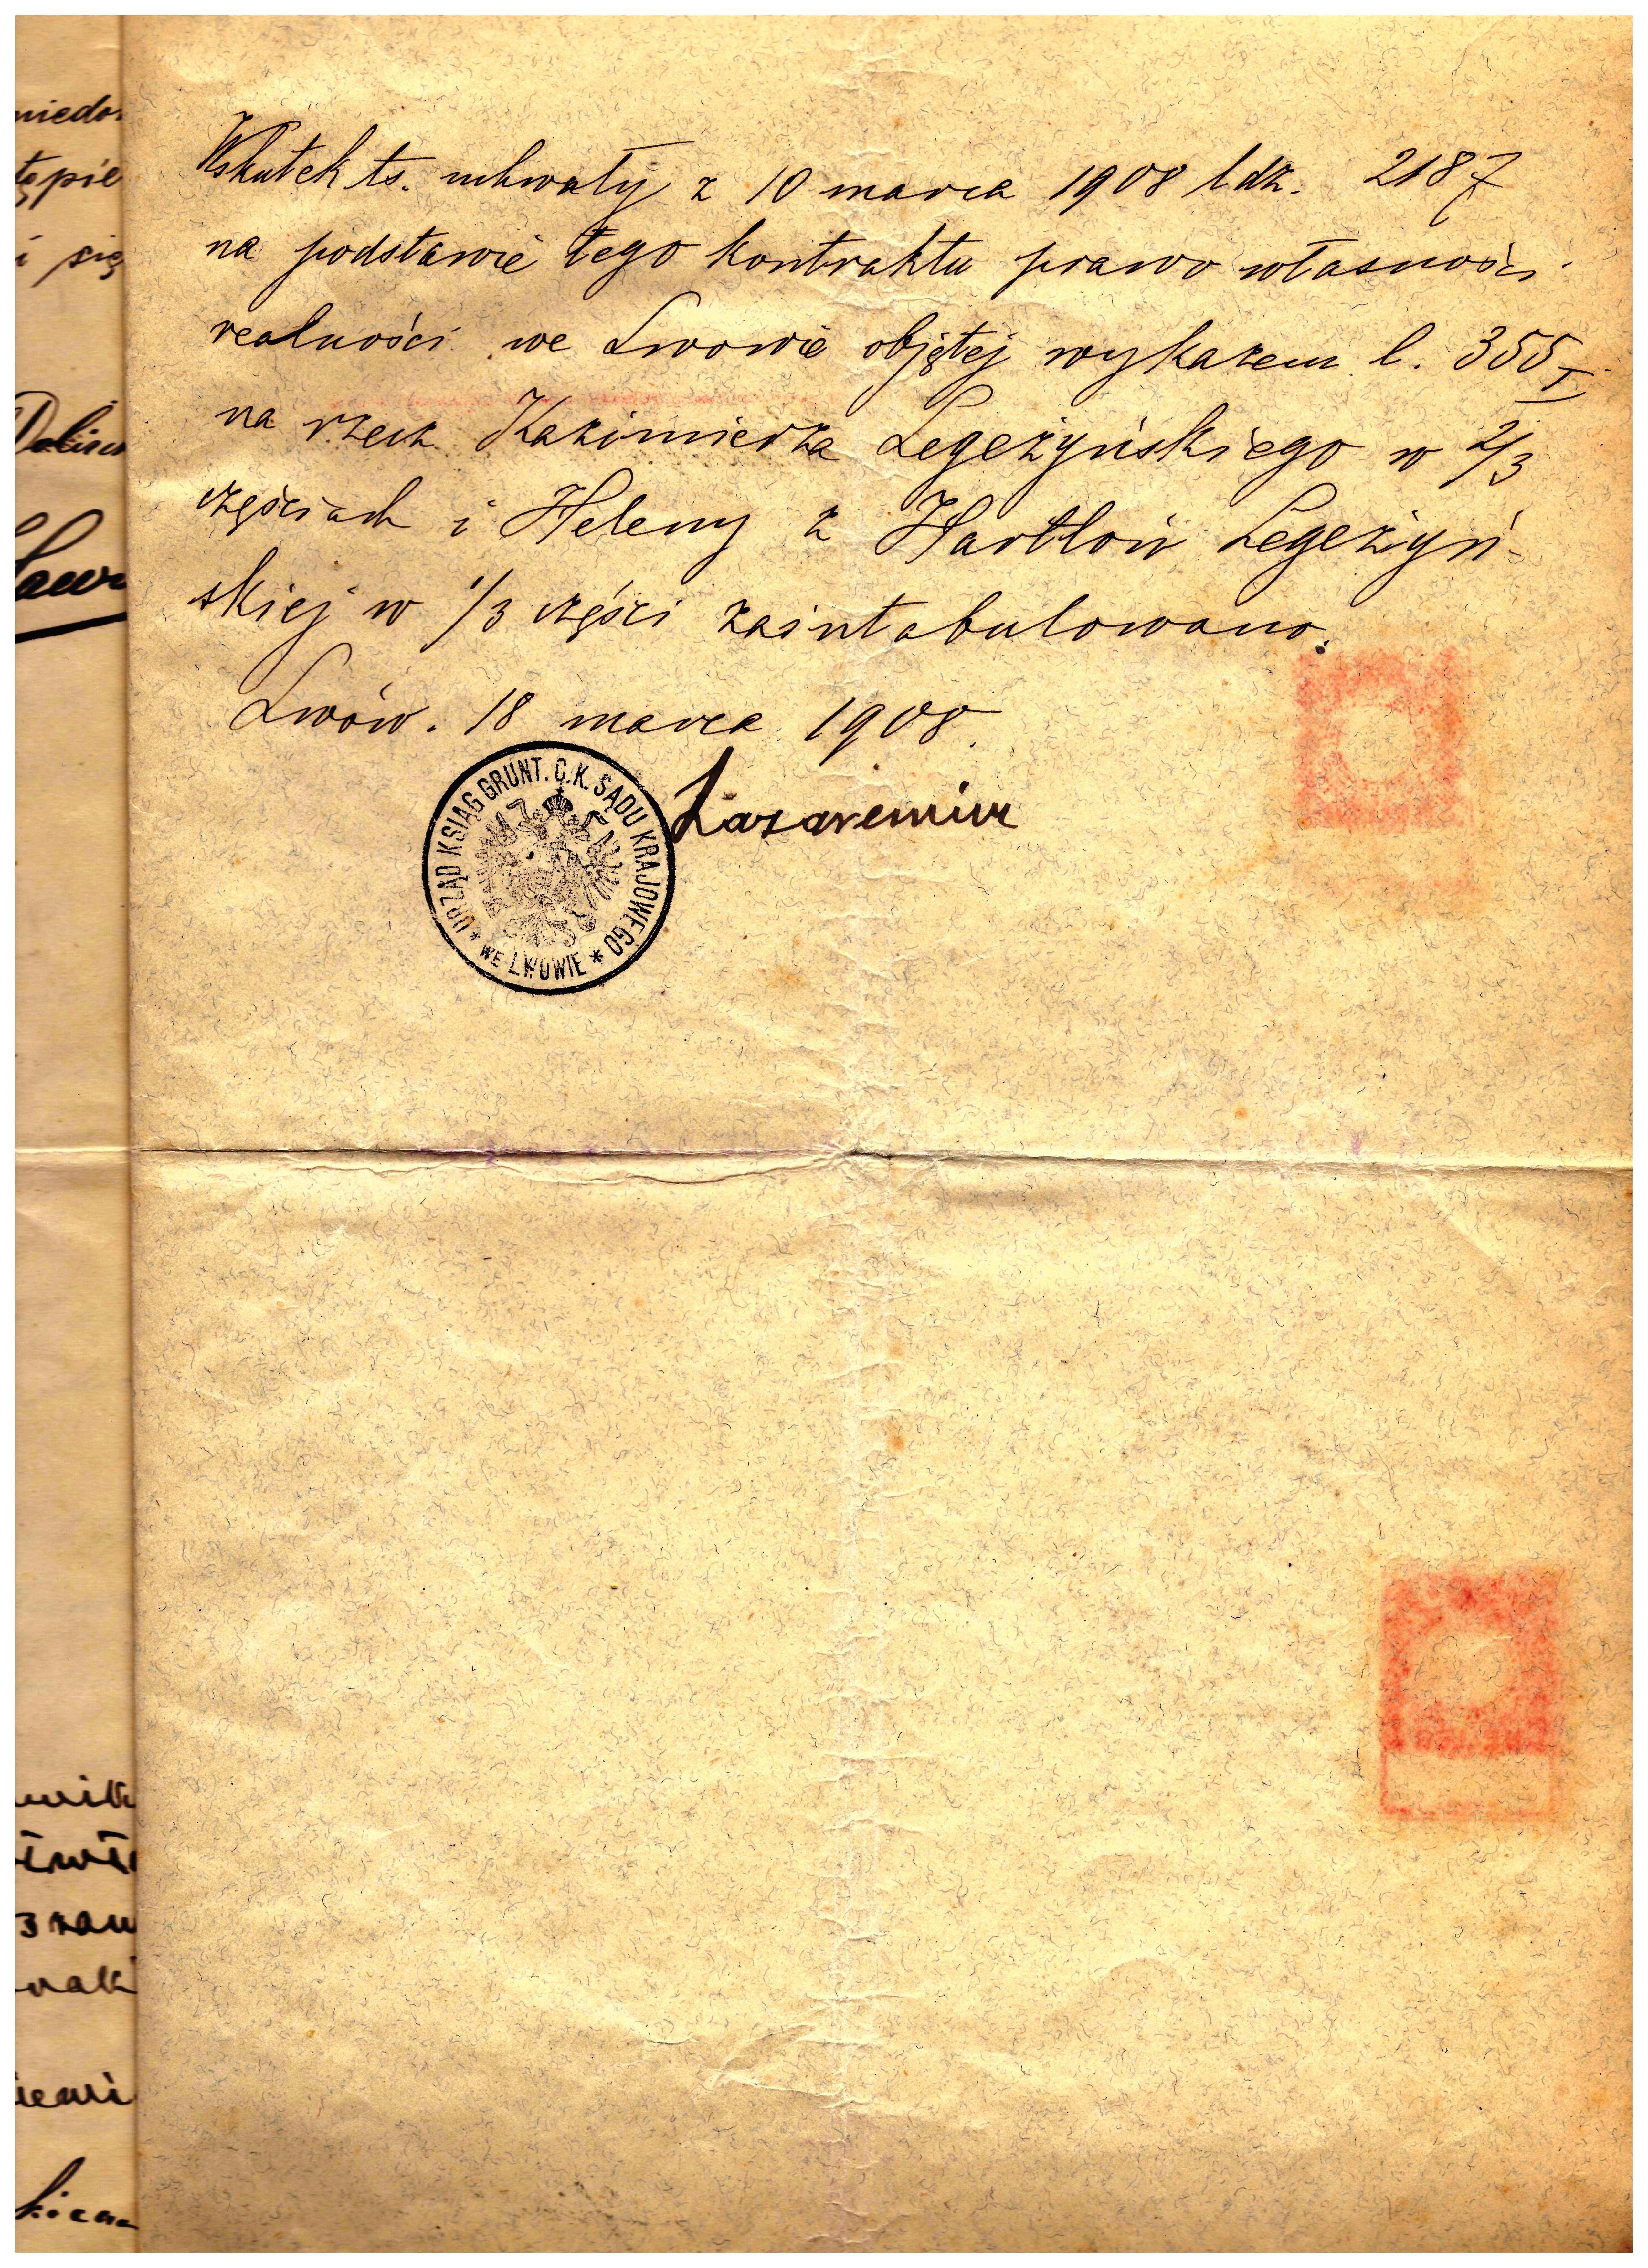 Wskutek ts. uchwały z 10 marca 1908 ldz. 2187
na podstawie tego kontraktu prawo własności
realności we Lwowie objętej wykazem l. 355 I
na rzecz Kazimierza Legeżyńskiego w 2/3
częściach i Heleny z Hartlów Legeżyń-
skiej w 1/3 części zaintabulowano.
Lwów. 18 marca 1908.
URZĄD KSIĄG GRUNT. C.K. SĄDU KRAJOWEGO
* WE LWOWIE *
i się